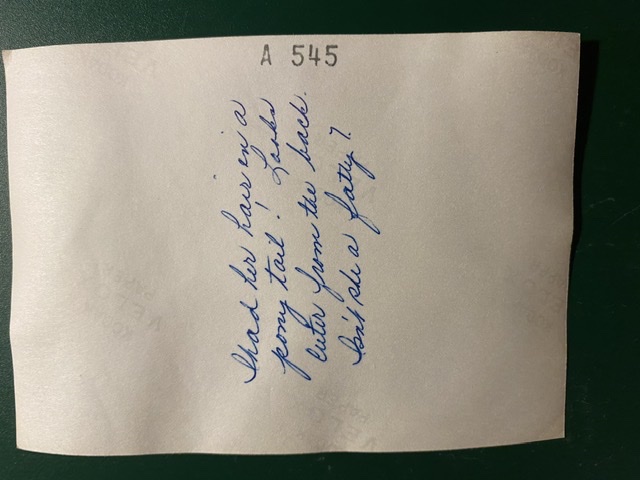 A 545
I had her hair in a
pony tail! Looks
cuter from the back.
Isn't she a fatty?